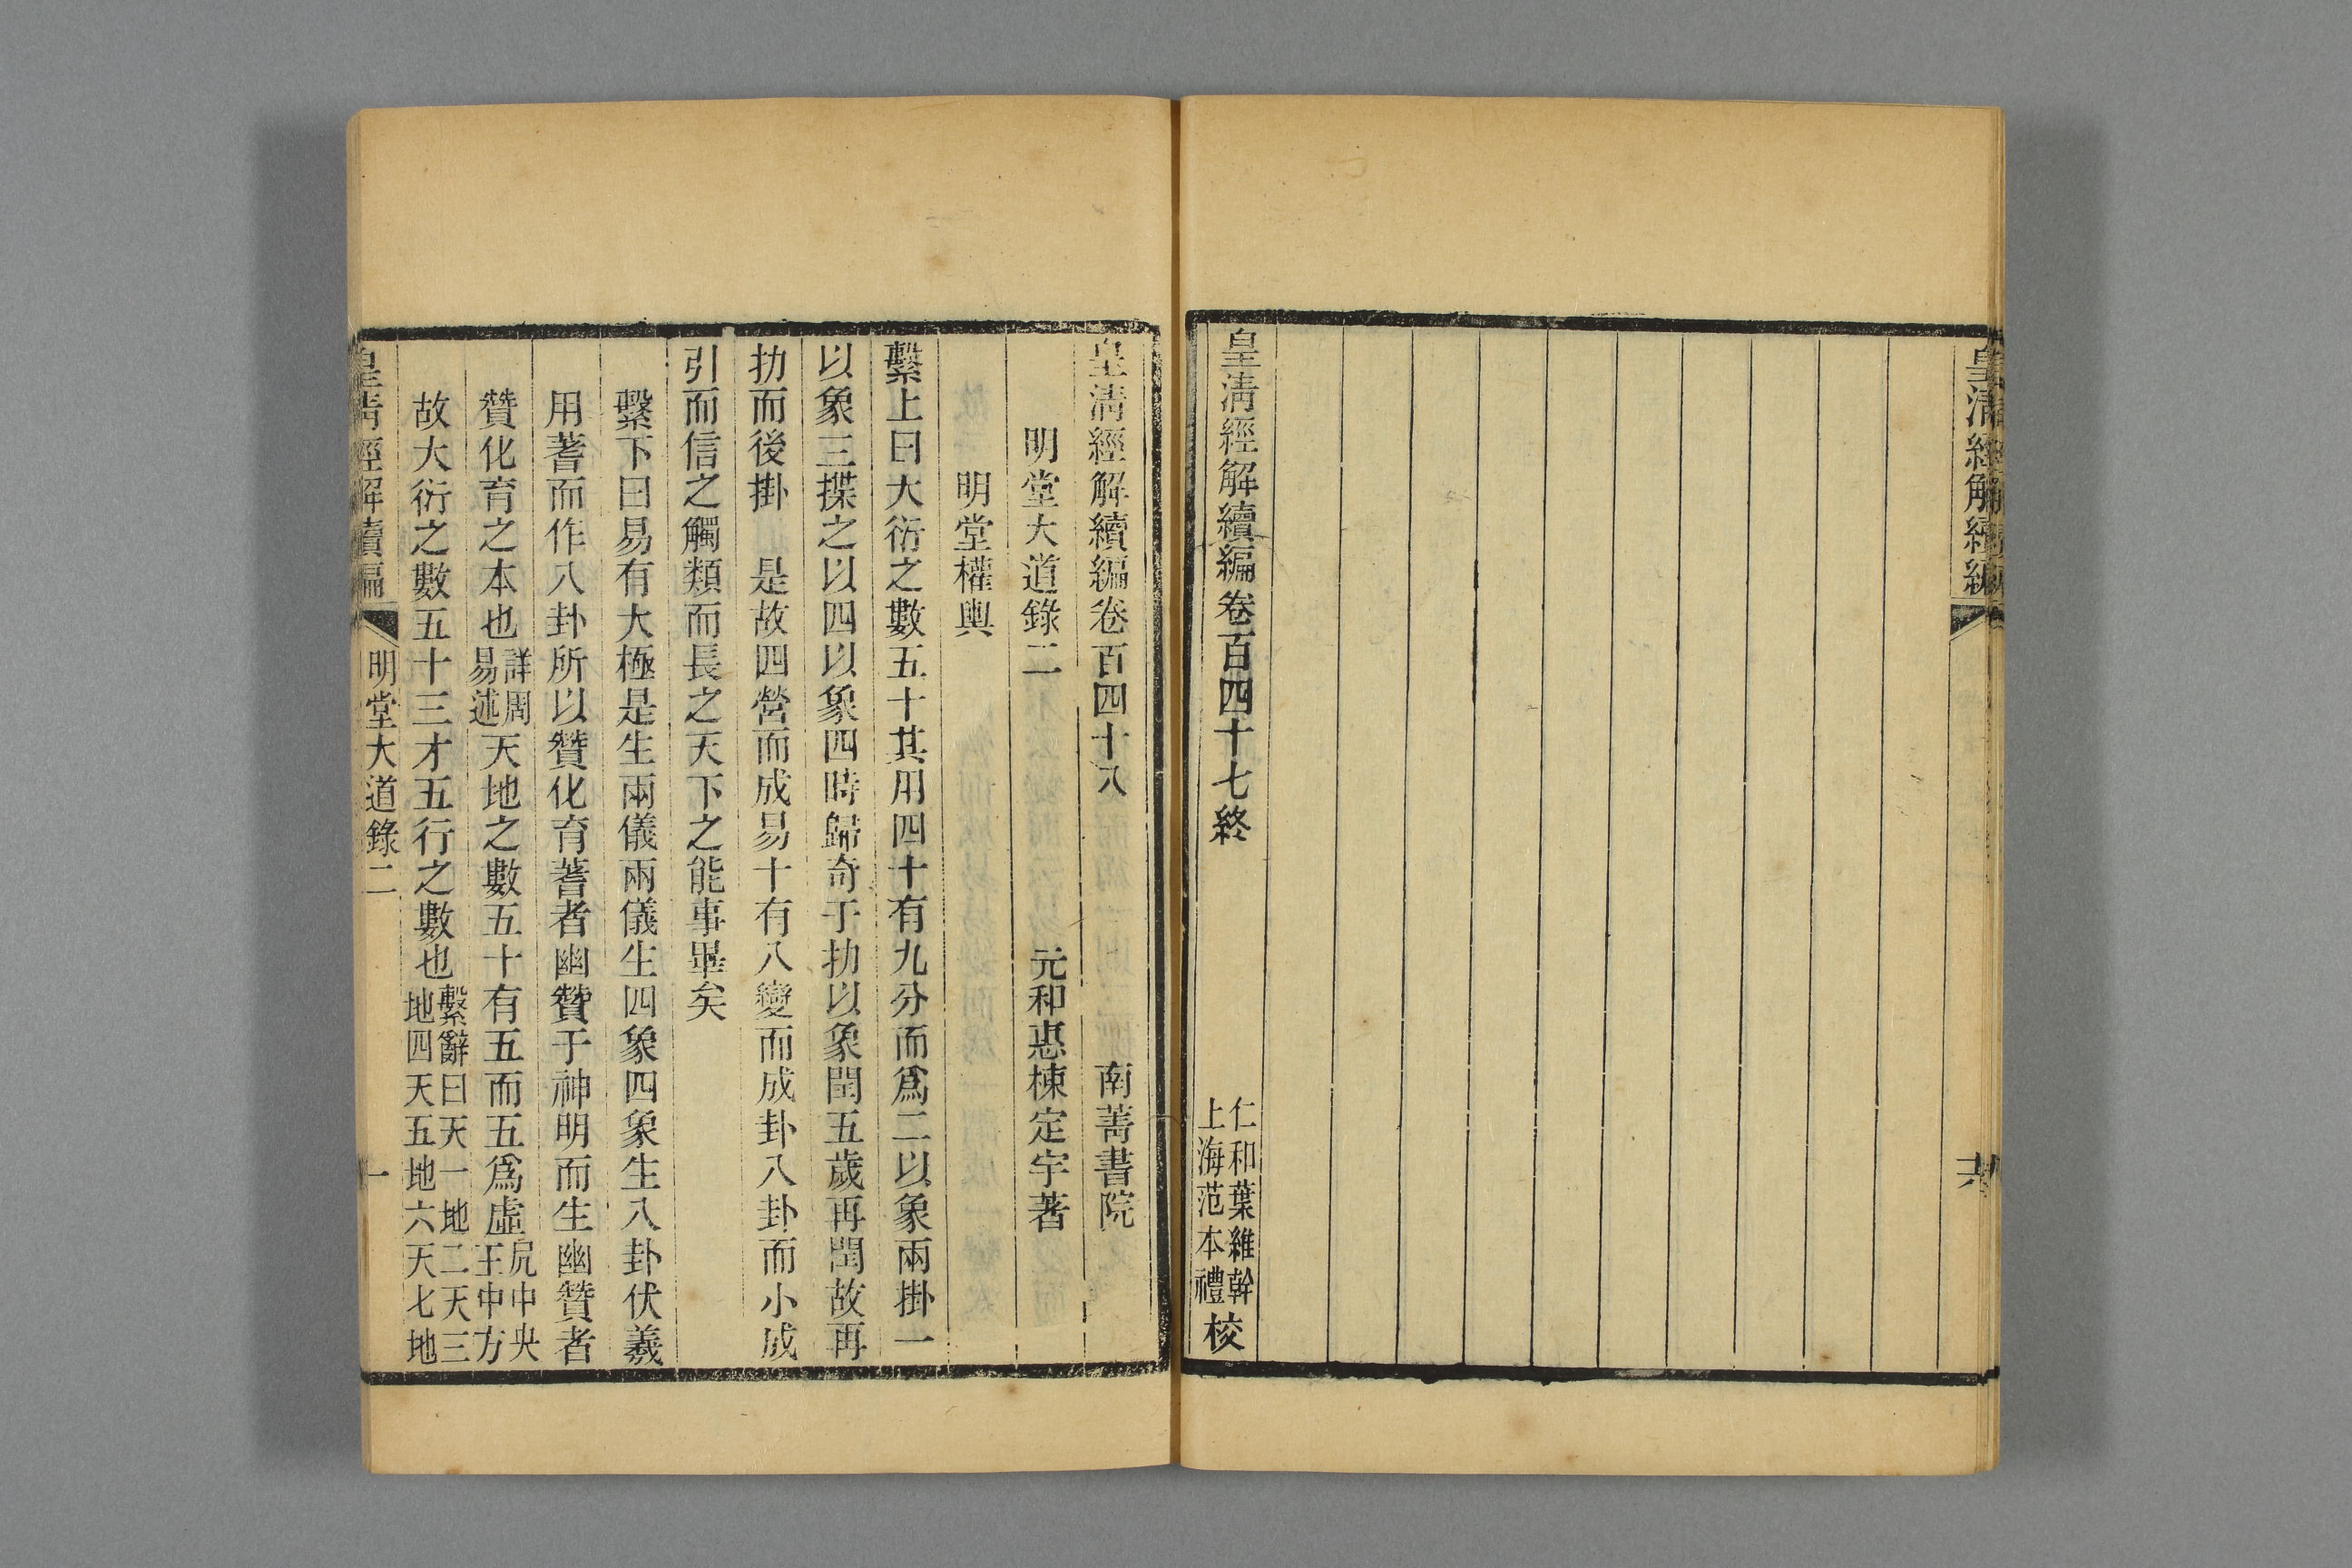 皇清經解續編
皇清經解續編卷百四十七終
仁和葉維幹
上海范本禮
校
皇清經解續編卷百四十八 南菁書院
明堂大道錄二 元和惠棟定宇著
明堂權輿
繫上曰大衍之數五十其用四十有九分而爲二以象兩掛一
以象三揲之以四以象四時歸奇于扐以象閏五歲再閏故再
扐而後掛 是故四營而成易十有八變而成卦八卦而小成
引而信之觸類而長之天下之能事畢矣
繫下曰易有大極是生兩儀兩儀生四象四象生八卦伏羲
用蓍而作八卦所以贊化育蓍者幽贊于神明而生幽贊者
贊化育之本也詳周易述天地之數五十有五而五爲虛凥中央王中方
故大衍之數五十三才五行之數也繫辭曰天一地二天三地四天五地六天七地
皇清經解續編 明堂大道錄二 一